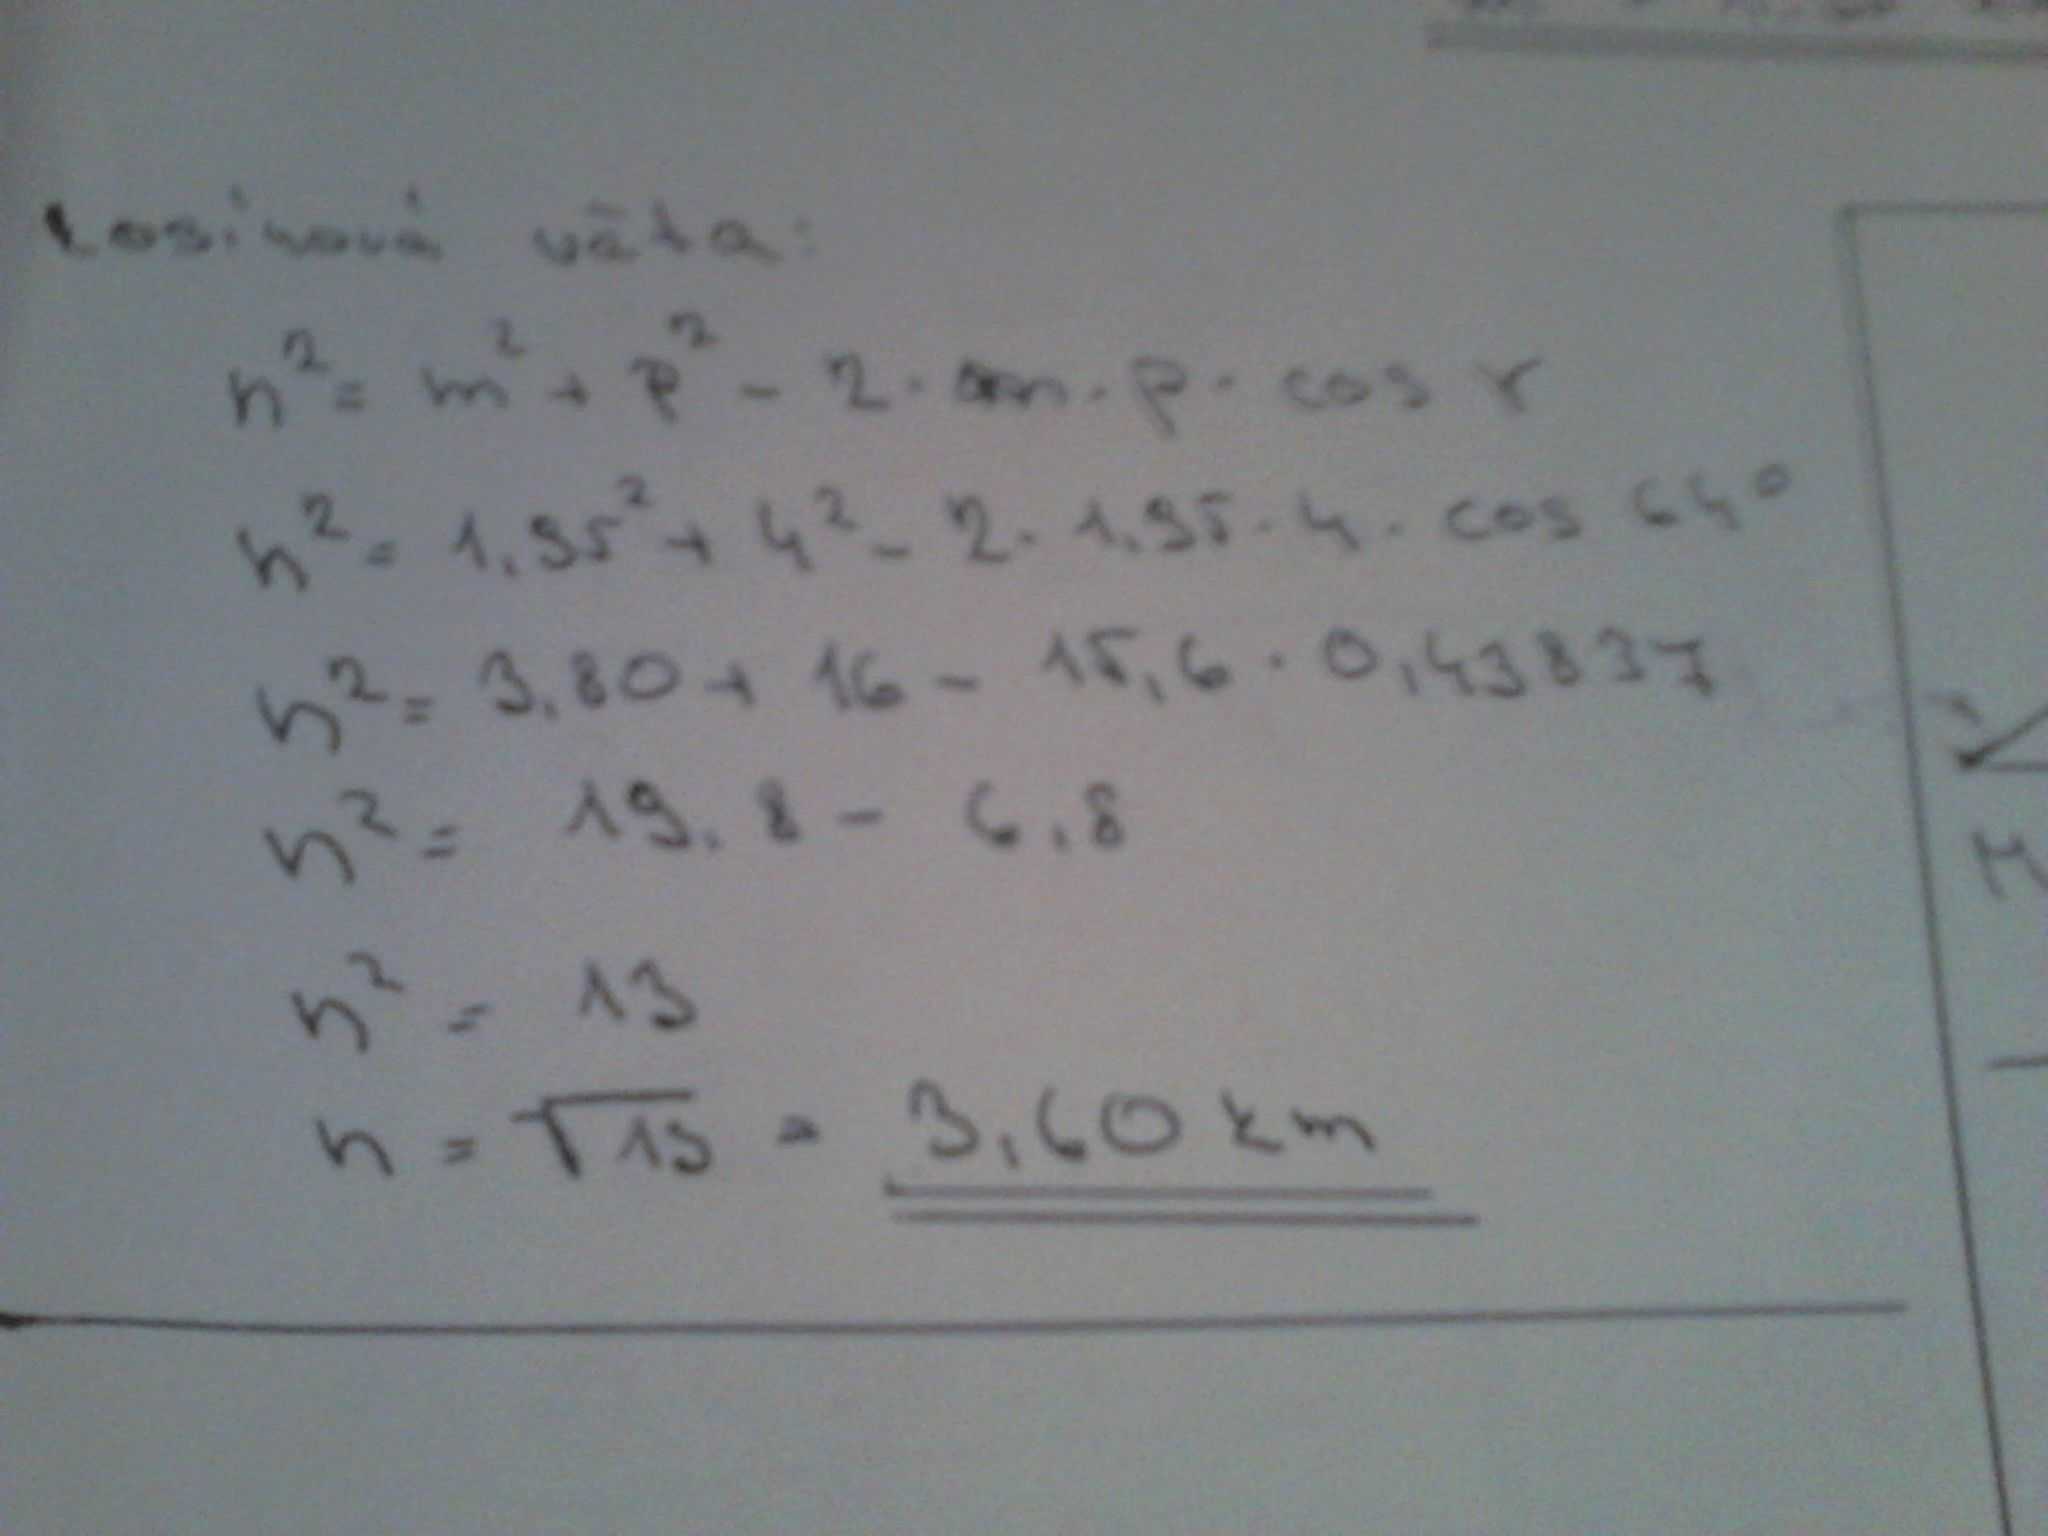 kosinová věta:
n² = m² + p² - 2 · m · p · cos γ
n² = 1,95² + 4² - 2 · 1,95 · 4 · cos 64°
n² = 3,80 + 16 - 15,6 · 0,43837
n² = 19,8 - 6,8
n² = 13
n = √13 = 3,60 km